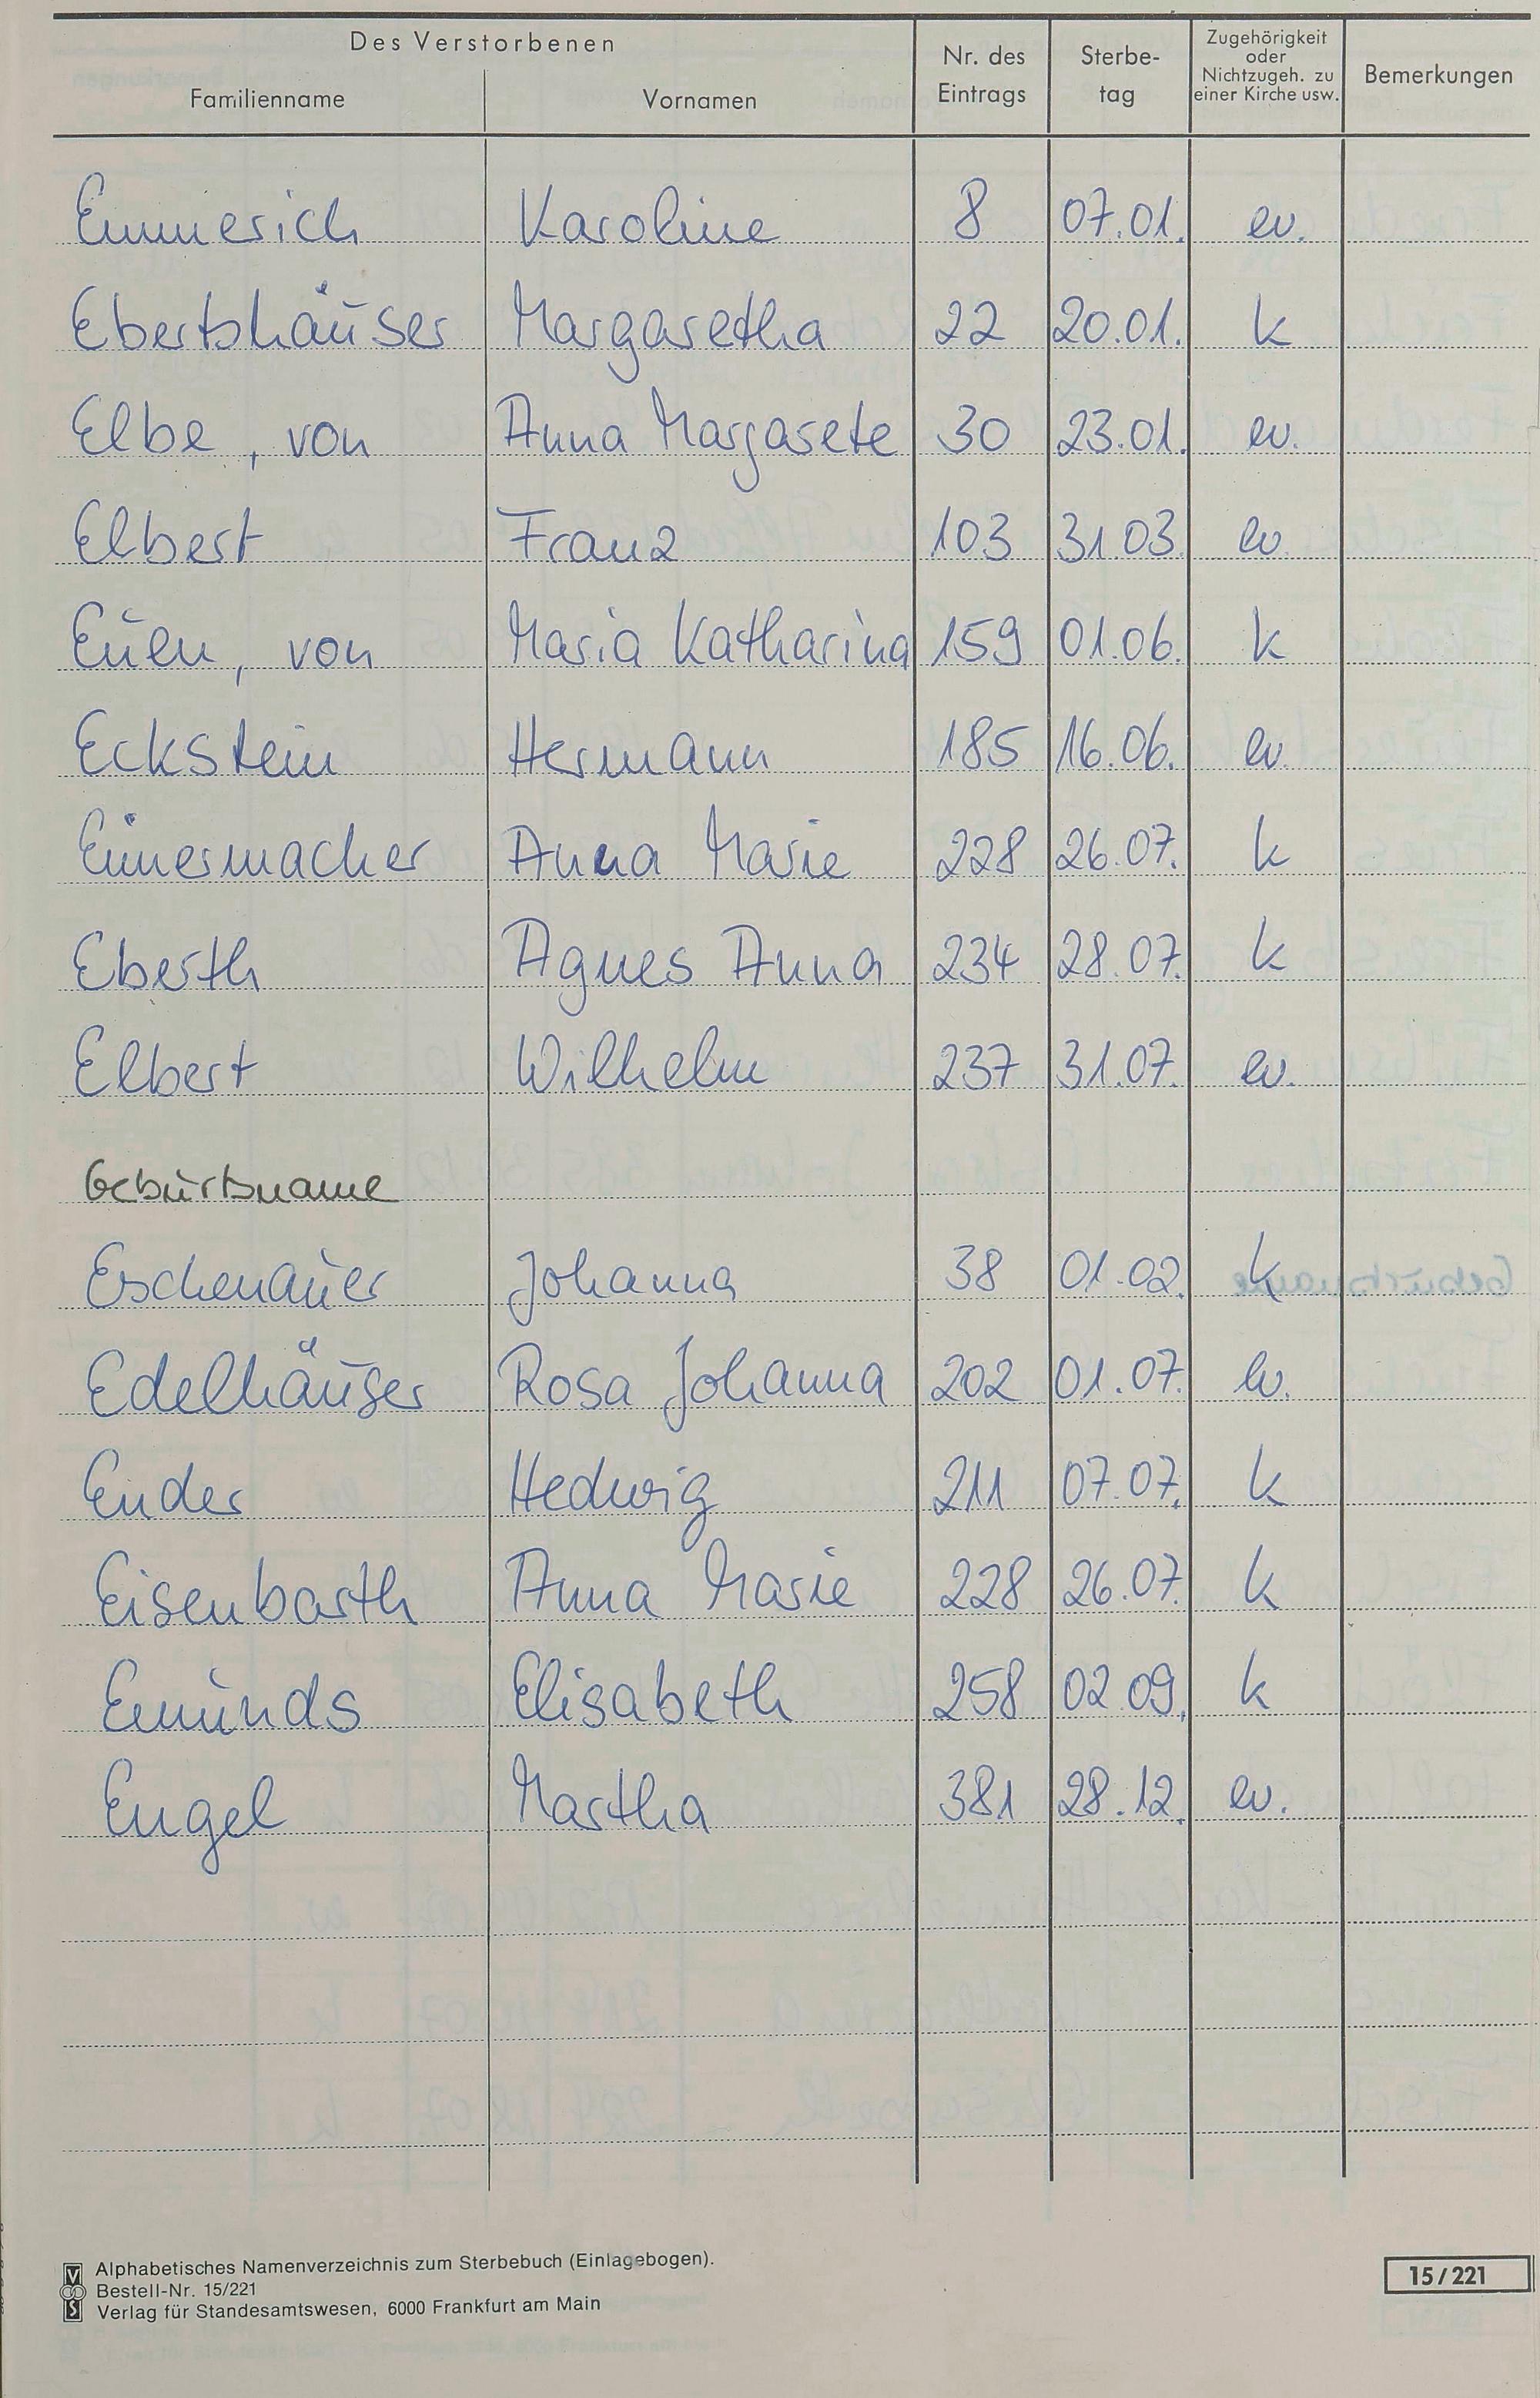 Des Verstorbenen
Familienname Vornamen Nr. des Eintrags Sterbe- tag Zugehörigkeit oder Nichtzugeh. zu einer Kirche usw. Bemerkungen
Emmerich Karoline 8 07.01. ev.
Ebertshäuser Margaretha 22 20.01. k
Elbe, von Anna Margarete 30 23.01. ev.
Elbert Franz 103 31.03. ev
Euen, von Maria Katharina 159 01.06. k
Eckstein Hermann 185 16.06. ev.
Eimermacher Anna Marie 228 26.07. k
Eberth Agnes Anna 234 28.07. k
Elbert Wilhelm 237 31.07. ev.
Geburtsname
Eschenauer Johanna 38 01.02. k
Edelhäußer Rosa Johanna 202 01.07. ev.
Ender Hedwig 211 07.07. k
Eisenbarth Anna Marie 228 26.07. k
Emunds Elisabeth 258 02.09. k
Engel Martha 381 28.12. ev.
Alphabetisches Namenverzeichnis zum Sterbebuch (Einlagebogen).
Bestell-Nr. 15/221
Verlag für Standesamtswesen, 6000 Frankfurt am Main
15/221